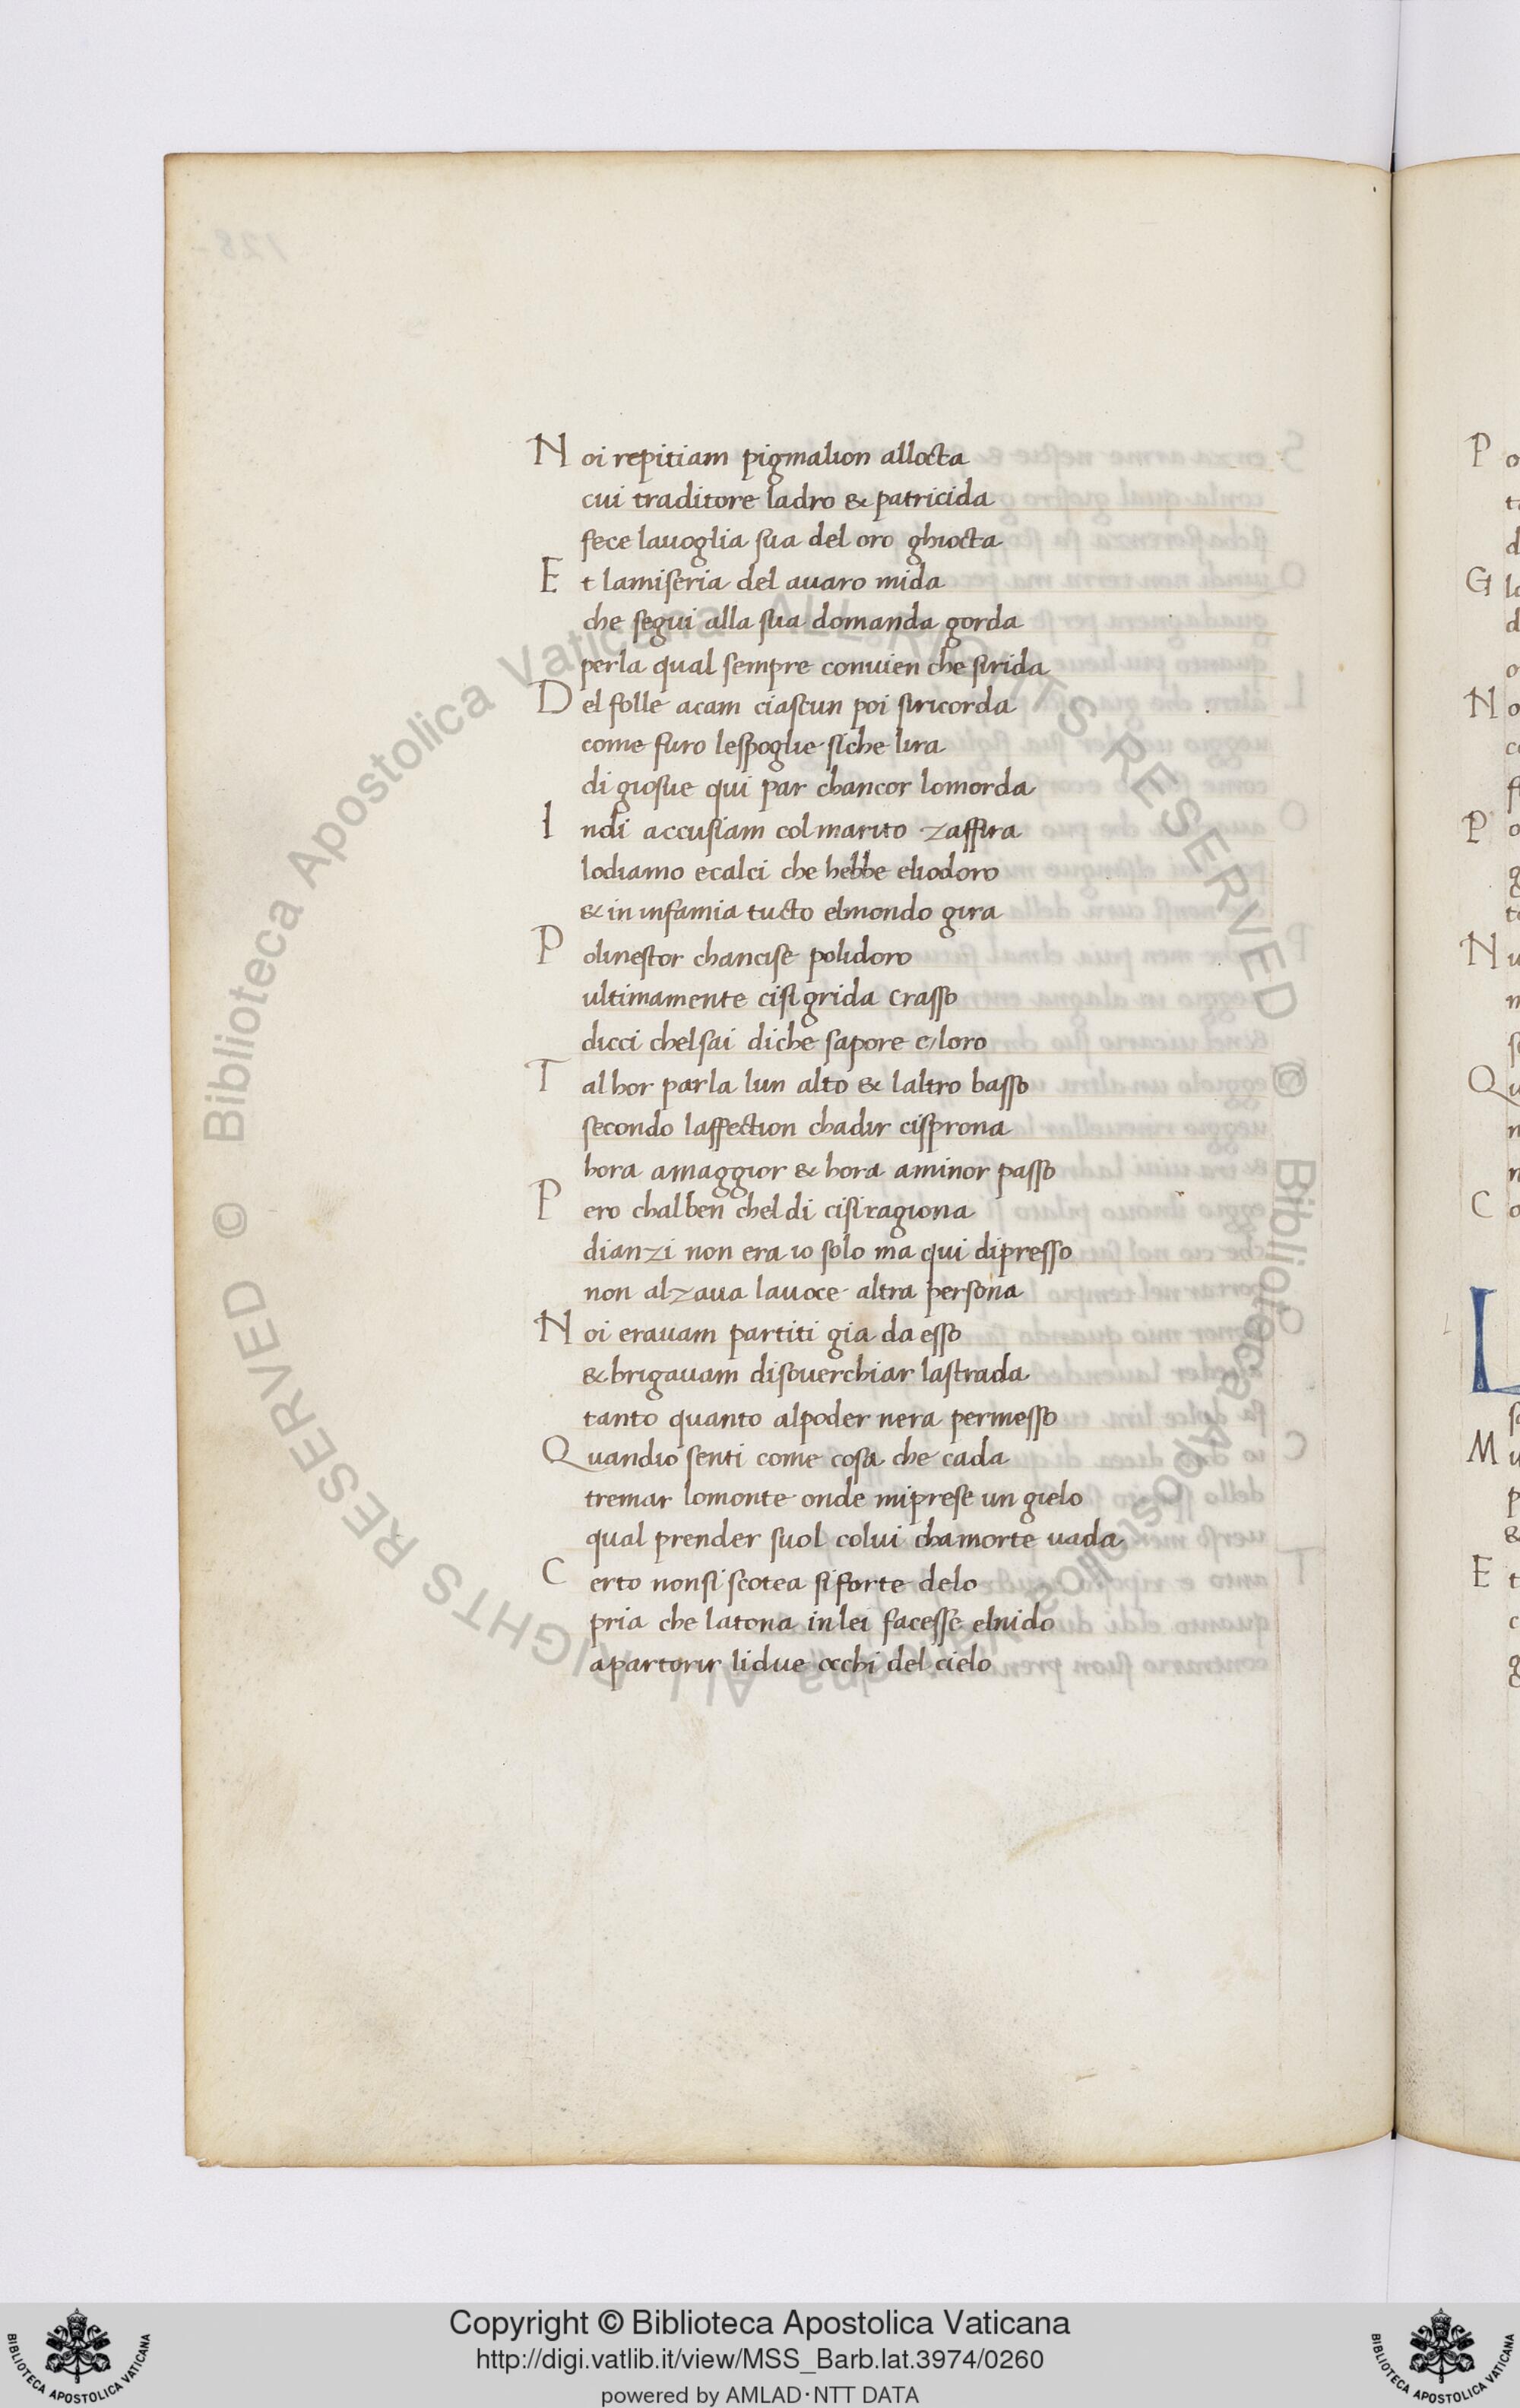 Noi repitiam pigmalion allocta
cui traditore ladro & patricida
fece lavoglia sua del oro ghiocta
Et lamiseria del avaro mida
che segui alla sua domanda gorda
perla qual sempre convien che sirida
Del folle acam ciascun poi siricorda
come furo lespoglie siche lira
di giosue qui par chancor lomorda
Indi accusiam col marito zaffira
lodiamo ecalci che hebbe eliodoro
& in infamia tucto elmondo gira
Polinestor chancise polidoro
ultimamente cisi grida crasso
dicci chelsai diche sapore e/loro
Talhor parla lun alto & laltro basso
secondo laffection chadir cisprona
hora amaggior & hora aminor passo
Pero chalben cheldi cisiragiona
dianzi non era io solo ma qui dipresso
non alzava lavoce altra persona
Noi eravam partiti gia da esso
& brigavam disoverchiar lastrada
tanto quanto alpoder nera permesso
Quandio senti come cosa che cada
tremar lomonte onde miprese un gielo
qual prender suol colui chamorte vada
Certo nonsi scotea siforte delo
pria che latona inlei facesse elnido
apartorir lidue occhi del cielo
P
G
N
P
N
Q
C
L
M
E
Biblioteca Apostolica Vaticana ALL RIGHTS RESERVED © Biblioteca Apostolica Vaticana ALL RIGHTS RESERVED ©
Copyright © Biblioteca Apostolica Vaticana
http://digi.vatlib.it/view/MSS_Barb.lat.3974/0260
powered by AMLAD·NTT DATA
BIBLIOTECA APOSTOLICA VATICANA
BIBLIOTECA APOSTOLICA VATICANA